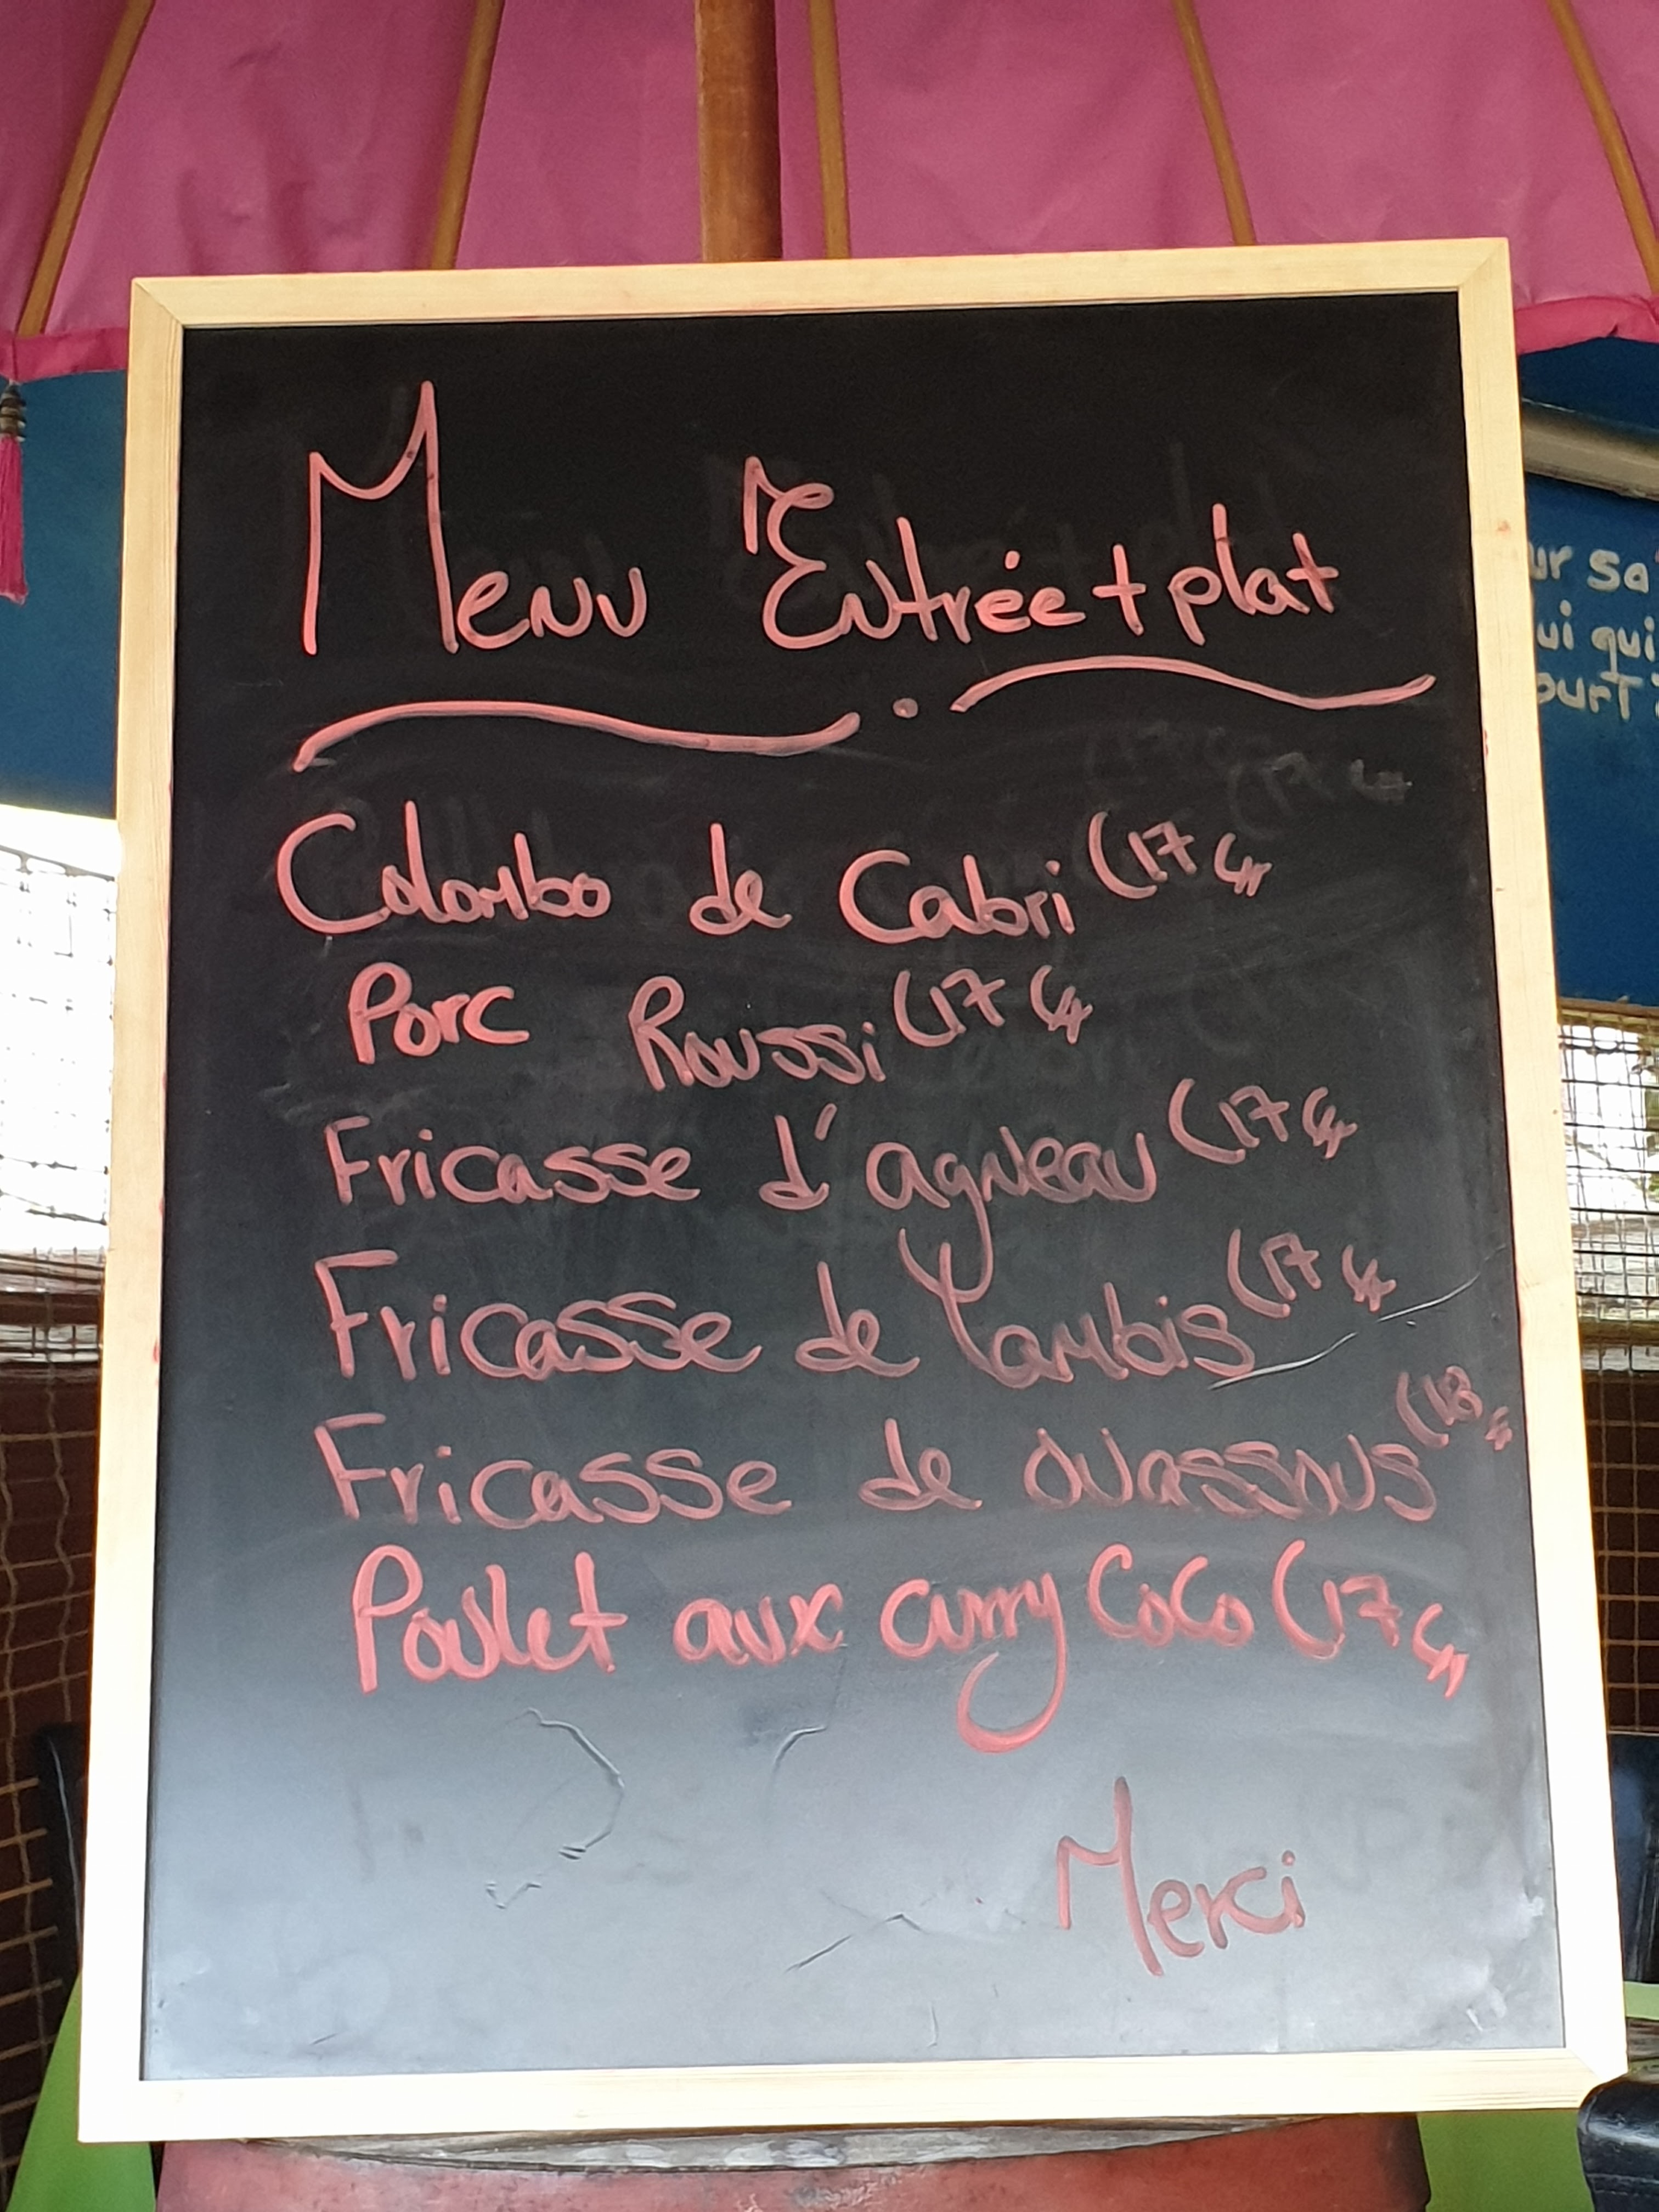 Menu Entrée + plat
Colombo de Cabri (17 €
Porc Roussi (17 €
Fricasse d'agneau (17 €
Fricasse de Lambis (17 €
Fricasse de Ouassous (18 €
Poulet aux curry Coco (17 €
Merci
ur sa
ui qui
ourt